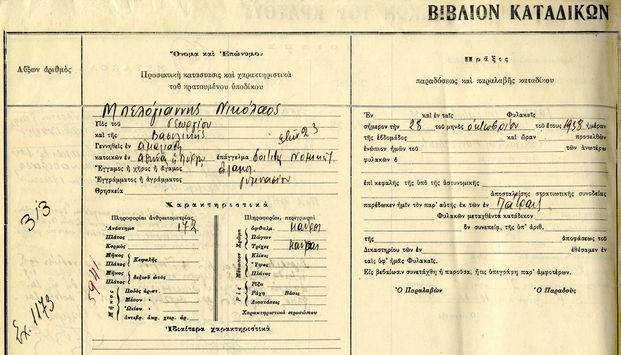 ΒΙΒΛΙΟΝ ΚΑΤΑΔΙΚΩΝ
Αὔξων ἀριθμὸς
Ὄνομα καὶ Ἐπώνυμον
Προσωπικὴ κατάστασις καὶ χαρακτηριστικὰ
τοῦ κρατουμένου ὑποδίκου
Μπελογιάννης Νικόλαος
Υἱὸς τοῦ Γεωργίου
καὶ τῆς Βασιλικῆς ἐτῶν 23
Γεννηθεὶς ἐν Ἀμαλιάδι
κατοικῶν ἐν ἐπάγγελμα φοιτητ Νομικῆς
Ἔγγαμος ἢ χῆρος ἢ ἄγαμος ἄγαμος
Ἐγγράμματος ἢ ἀγράμματος γυμνασίου
Θρησκεία
313
Σχ. 1173
Χαρακτηριστικὰ
Πληροφορίαι ἀνθρωπομετρίας.
Ἀνάστημα 172
Πλάτος
Κορμὸς
Μῆκος
Πλάτος
Κεφαλῆς
Μῆκος
Πλάτος
δεξιοῦ ὠτὸς
Ποδὸς ἀριστ.
Μέσου »
Ὠτίου »
ἀντιβρ. ἀκρ. χειρ. ἀρ.
Πληροφορίαι, περιγραφαὶ
Χρῶμα
ὀφθαλμ. καστ
Πώγων
Τρίχες καστ
Μέτωπον
Κλίσις
Ὕψος
Πλάτος
Ρὶς
Ρίζα
Ράχη Βάσις
Διαστάσεις
Χαρακτηριστικὰ προσώπου
Ἰδιαίτερα χαρακτηριστικὰ
Πρᾶξις
παραδόσεως καὶ παραλαβῆς καταδίκου
Ἐν καὶ ἐν ταῖς Φυλακαῖς
σήμερον τὴν 28 τοῦ μηνὸς ὀκτωβρίου τοῦ ἔτους 1938 ἡμέραν
τῆς ἑβδομάδος καὶ ὥραν προσελθὼν
ἐνώπιον ἡμῶν τοῦ τῶν ἀνωτέρω
φυλακῶν ὁ
ἐπὶ κεφαλῆς τῆς ὑπὸ τῆς ἀστυνομικῆς
ἀποσταλείσης στρατιωτικῆς συνοδείας
παρέδωκεν ἡμῖν τὸν παρ' αὐτῆς ἐκ τῶν ἐν Πάτραις
Φυλακῶν μεταχθέντα κατάδικον
ὃν συνεπείᾳ, τῆς ὑπ' ἀριθ.
τῆς ἀποφάσεως τοῦ
Δικαστηρίου τῶν ἐν ἐθέσαμεν ἐν
ταῖς ὑφ' ἡμᾶς Φυλακαῖς.
Εἰς βεβαίωσιν συνετάχθη ἡ παροῦσα, ἥτις ὑπεγράφη παρ' ἀμφοτέρων.
Ὁ Παραλαβὼν Ὁ Παραδοὺς